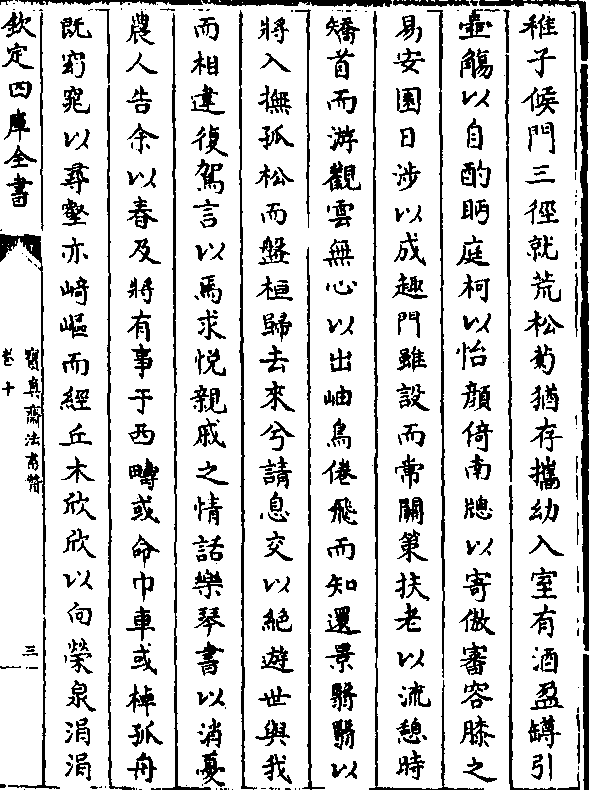 稚子候門三徑就荒松菊猶存攜幼入室有酒盈罇引
壺觴以自酌眄庭柯以怡顏倚南牕以寄傲審容膝之
易安園日涉以成趣門雖設而常關策扶老以流憩時
矯首而游觀雲無心以出岫鳥倦飛而知還景翳翳以
將入撫孤松而盤桓歸去來兮請息交以絕遊世與我
而相違復駕言以焉求悅親戚之情話樂琴書以消憂
農人告余以春及將有事于西疇或命巾車或棹孤舟
既窈窕以尋壑亦崎嶇而經丘木欣欣以向榮泉涓涓
欽定四庫全書
寶真齋法書贊
卷十
三